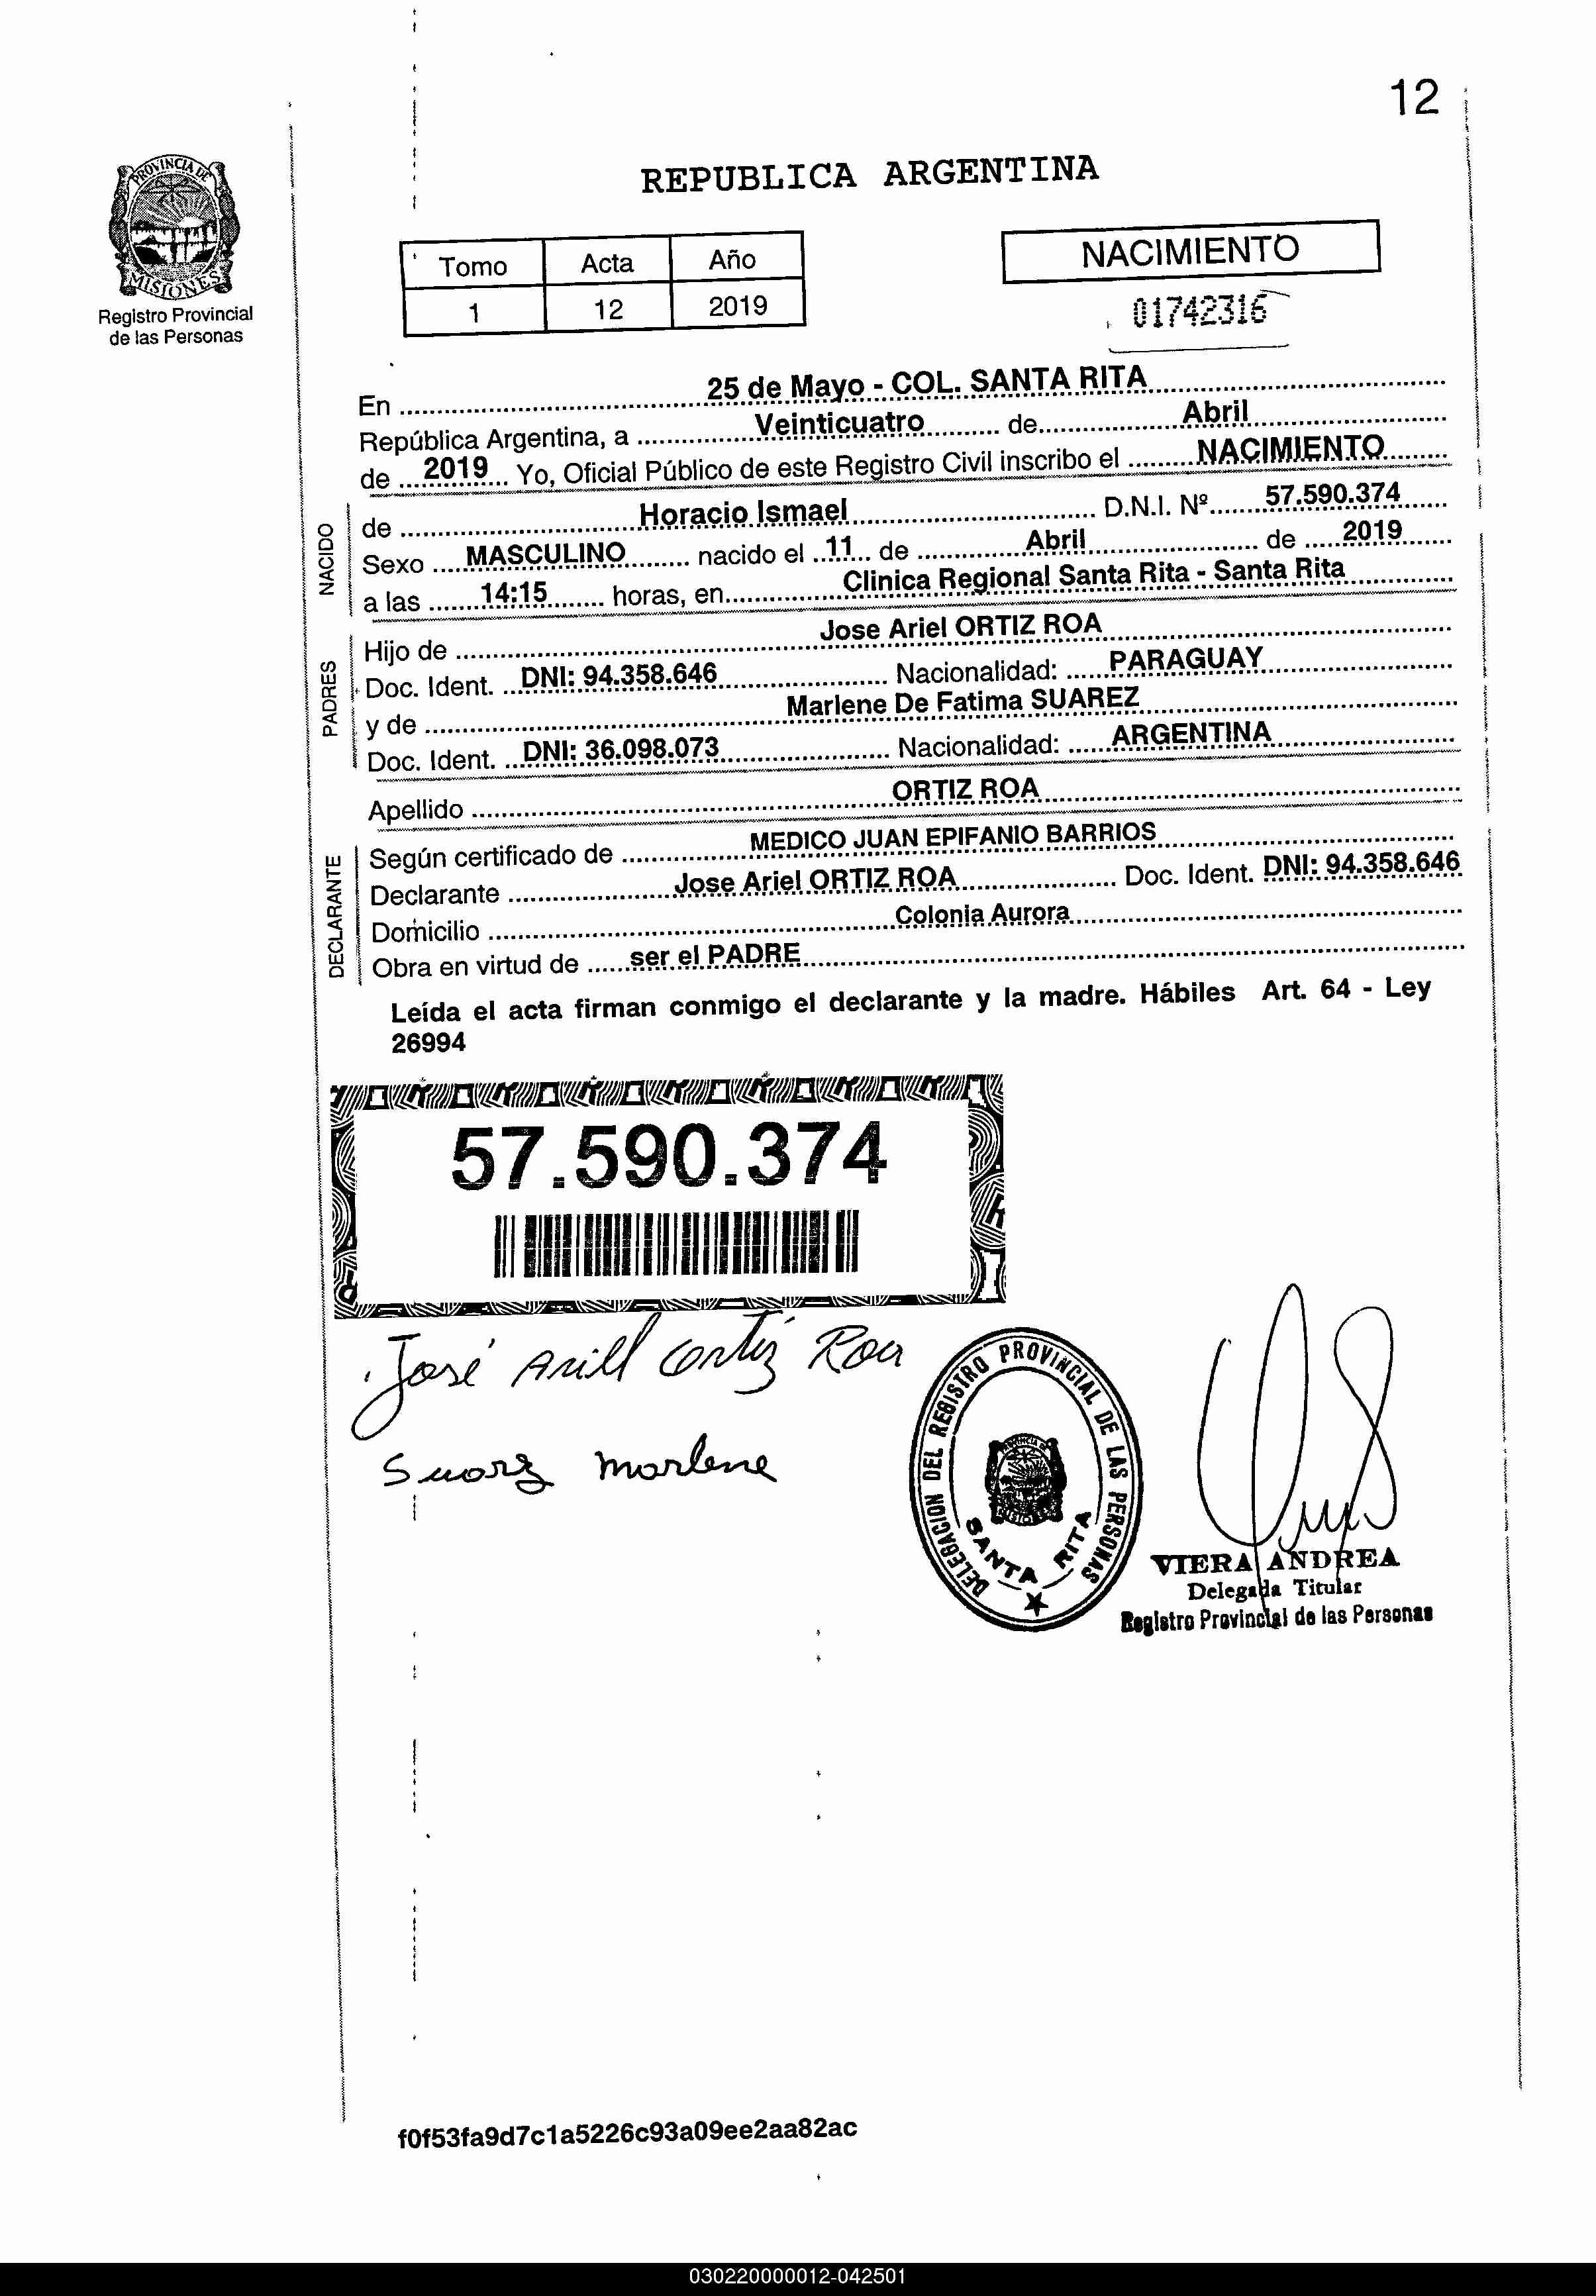 12
PROVINCIA DE
MISIONES
Registro Provincial
de las Personas
REPUBLICA ARGENTINA
Tomo Acta Año
1 12 2019
NACIMIENTO
01742316
En 25 de Mayo - COL. SANTA RITA
República Argentina, a Veinticuatro de Abril
de 2019 Yo, Oficial Público de este Registro Civil inscribo el NACIMIENTO
NACIDO
de Horacio Ismael D.N.I. Nº 57.590.374
Sexo MASCULINO nacido el 11 de Abril de 2019
a las 14:15 horas, en Clinica Regional Santa Rita - Santa Rita
PADRES
Hijo de Jose Ariel ORTIZ ROA
Doc. Ident. DNI: 94.358.646 Nacionalidad: PARAGUAY
y de Marlene De Fatima SUAREZ
Doc. Ident. DNI: 36.098.073 Nacionalidad: ARGENTINA
Apellido ORTIZ ROA
DECLARANTE
Según certificado de MEDICO JUAN EPIFANIO BARRIOS
Declarante Jose Ariel ORTIZ ROA Doc. Ident. DNI: 94.358.646
Domicilio Colonia Aurora
Obra en virtud de ser el PADRE
Leída el acta firman conmigo el declarante y la madre. Hábiles Art. 64 - Ley
26994
57.590.374
José Ariel Ortiz Roa
Suarez marlene
DELEGACION DEL REGISTRO PROVINCIAL DE LAS PERSONAS
SANTA RITA
VIERA ANDREA
Delegada Titular
Registro Provincial de las Personas
f0f53fa9d7c1a5226c93a09ee2aa82ac
030220000012-042501